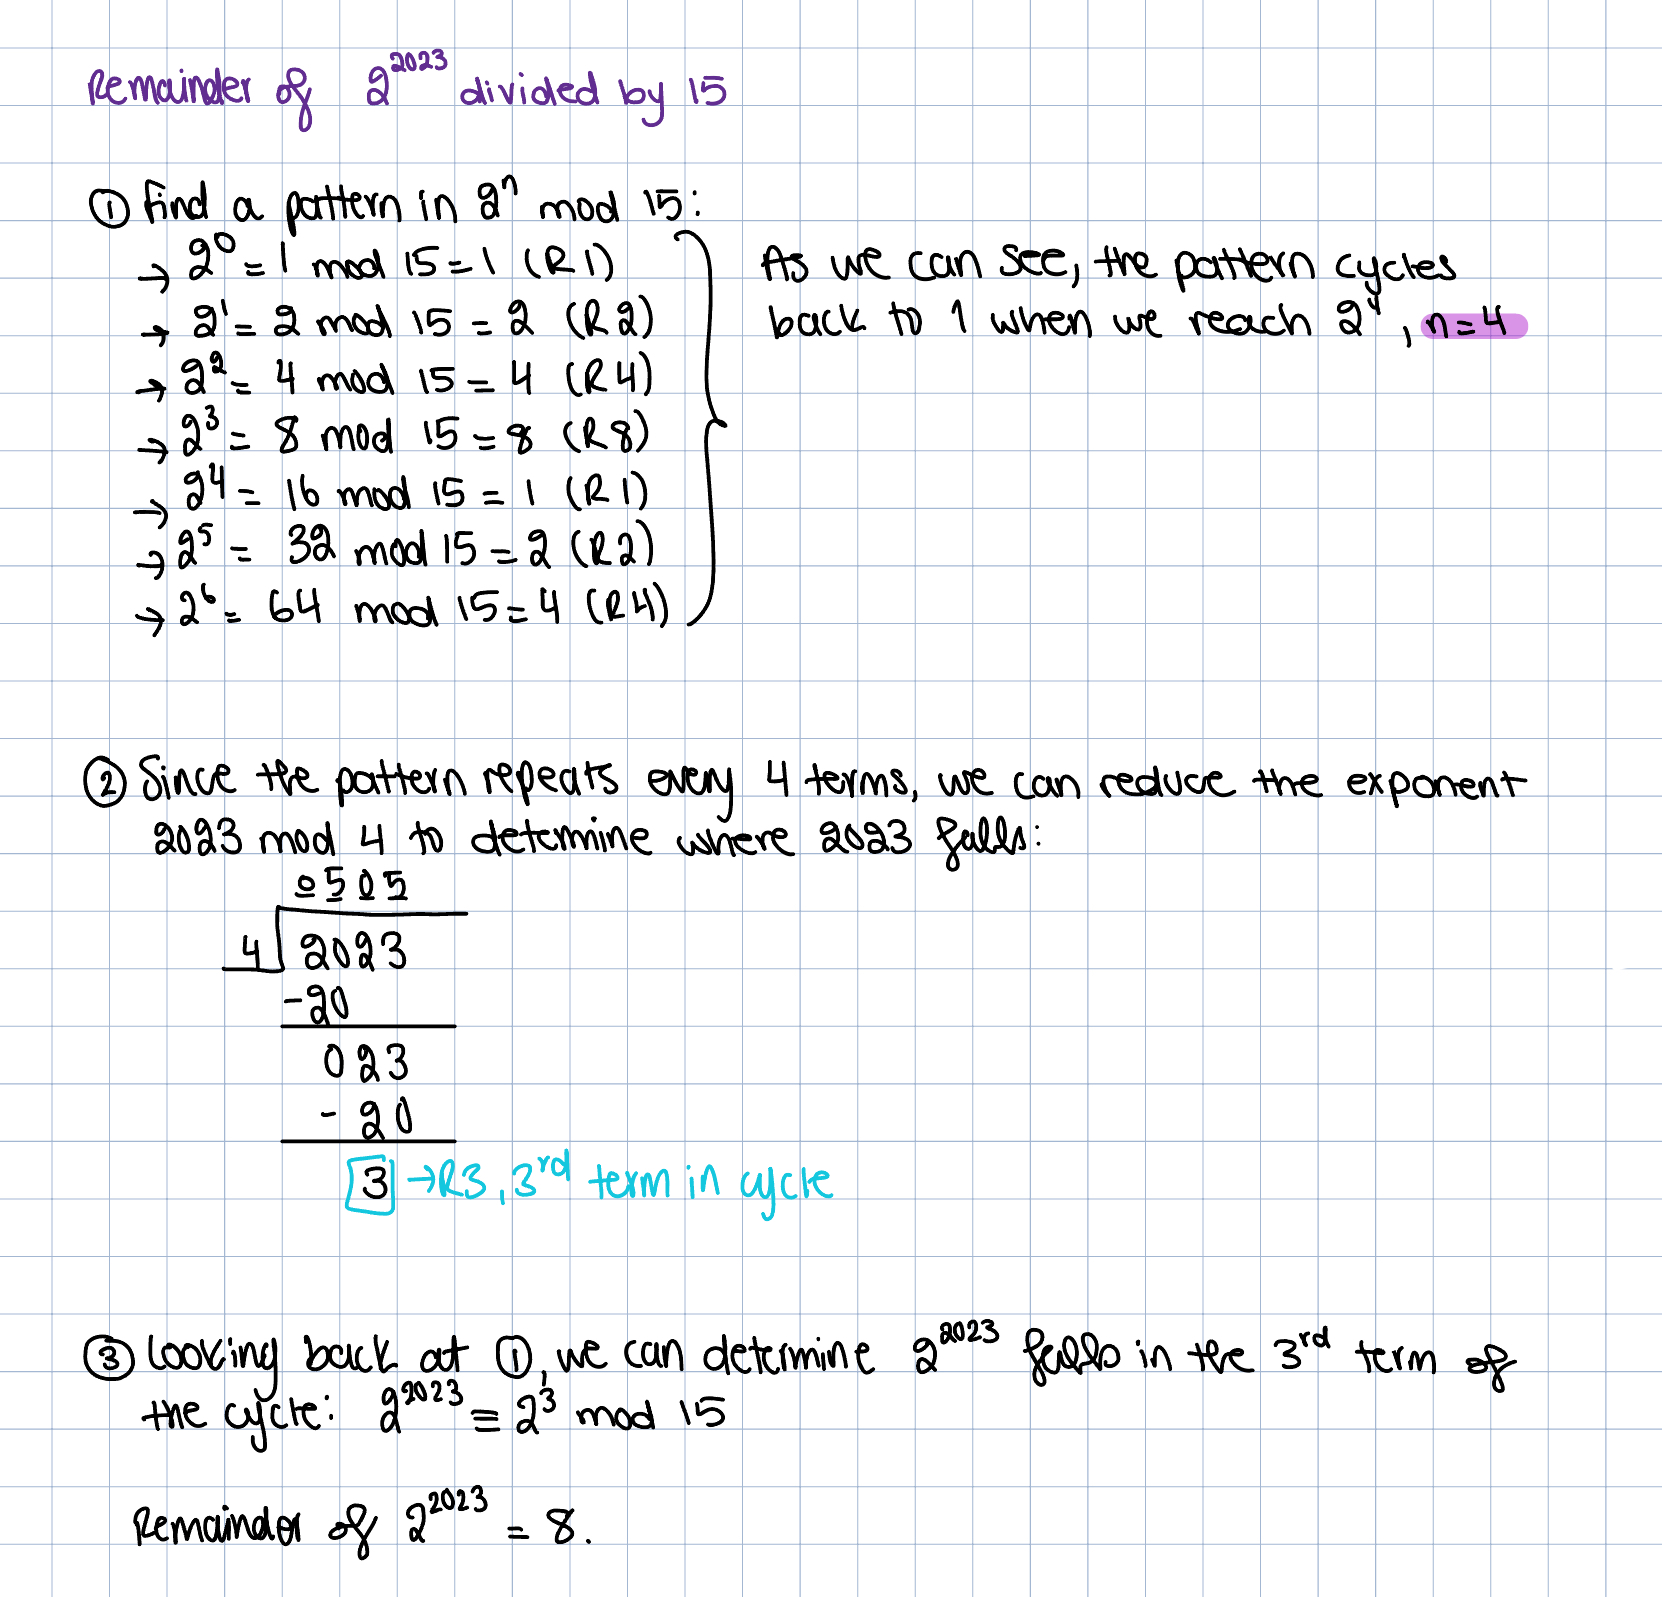 Remainder of 2^2023 divided by 15
① find a pattern in 2^n mod 15:
→ 2^0 = 1 mod 15 = 1 (R1)
→ 2^1 = 2 mod 15 = 2 (R2)
→ 2^2 = 4 mod 15 = 4 (R4)
→ 2^3 = 8 mod 15 = 8 (R8)
→ 2^4 = 16 mod 15 = 1 (R1)
→ 2^5 = 32 mod 15 = 2 (R2)
→ 2^6 = 64 mod 15 = 4 (R4)
As we can see, the pattern cycles
back to 1 when we reach 2^4, n=4
② Since the pattern repeats every 4 terms, we can reduce the exponent
2023 mod 4 to determine where 2023 falls:
0505
4 2023
-20
023
-20
3 → R3, 3rd term in cycle
③ Looking back at ①, we can determine 2^2023 falls in the 3rd term of
the cycle: 2^2023 ≡ 2^3 mod 15
Remainder of 2^2023 = 8.